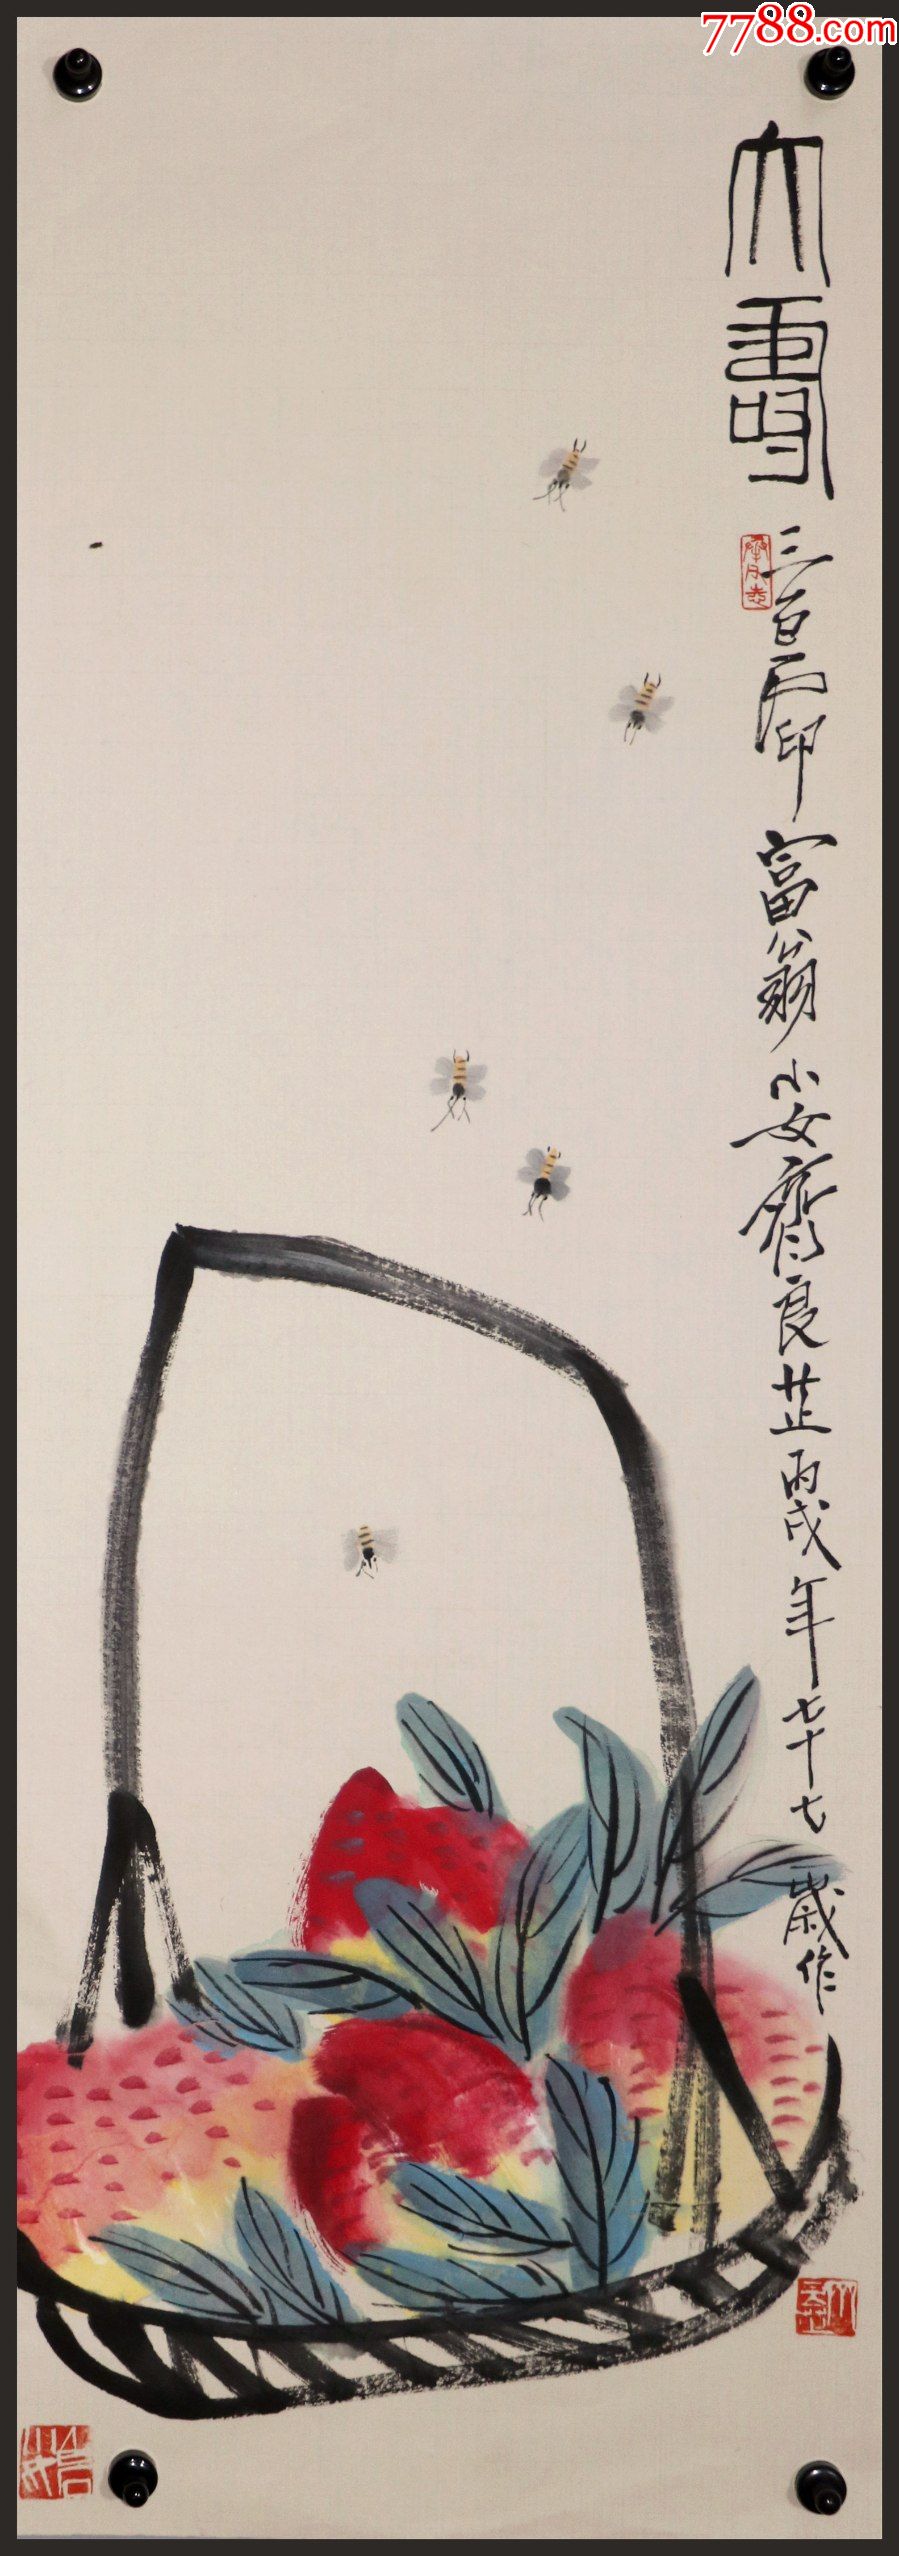 7788.com
大壽
三百石印富翁小女齊良芷丙戌年七十七歲作